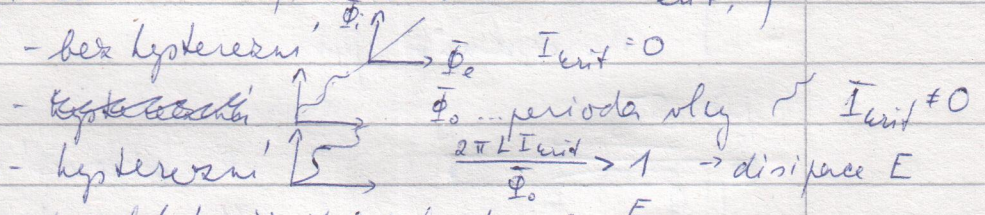 - bez hysterezní Φᵢ Φₑ I_krit = 0
- Φ₀ ... perioda vlny I_krit ≠ 0
- hysterezní 2πLI_krit / Φ₀ > 1 → disipace E